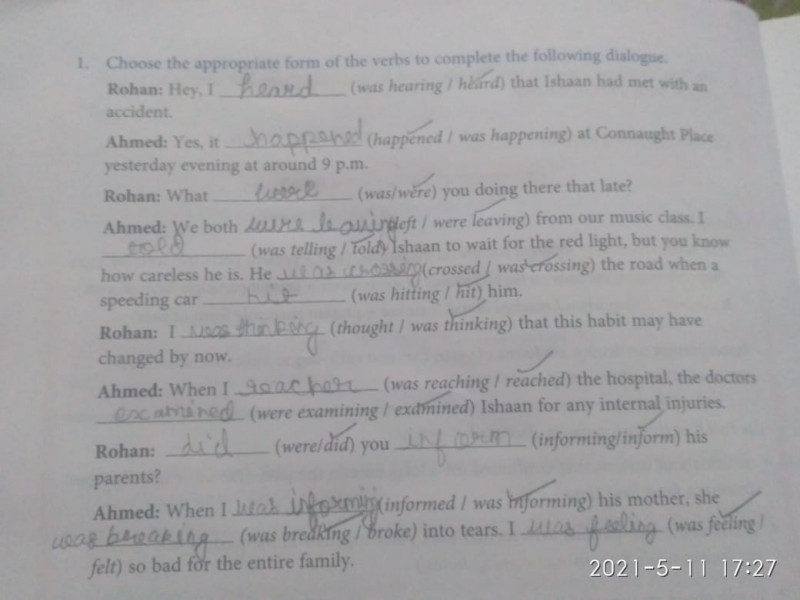 1. Choose the appropriate form of the verbs to complete the following dialogue.
Rohan: Hey, I heard (was hearing / heard) that Ishaan had met with an
accident.
Ahmed: Yes, it happened (happened / was happening) at Connaught Place
yesterday evening at around 9 p.m.
Rohan: What were (was/were) you doing there that late?
Ahmed: We both were leaving (left / were leaving) from our music class. I
told (was telling / told) Ishaan to wait for the red light, but you know
how careless he is. He was crossing (crossed / was crossing) the road when a
speeding car hit (was hitting / hit) him.
Rohan: I was thinking (thought / was thinking) that this habit may have
changed by now.
Ahmed: When I (was reaching / reached) the hospital, the doctors
examined (were examining / examined) Ishaan for any internal injuries.
Rohan: did (were/did) you inform (informing/inform) his
parents?
Ahmed: When I was informing (informed / was informing) his mother, she
was breaking (was breaking / broke) into tears. I was feeling (was feeling /
felt) so bad for the entire family.
2021-5-11 17:27